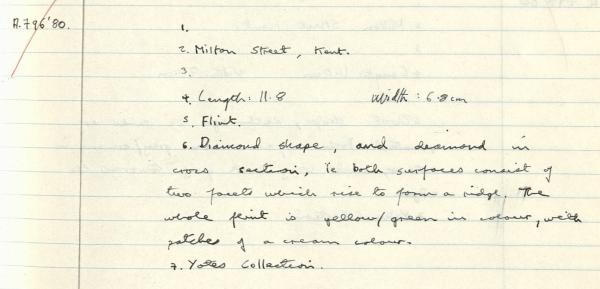 A.796'80.
1.
2. Milton Street, Kent.
3.
4. Length: 11.8 Width: 6.8cm
5. Flint.
6. Diamond shape, and deamond in
cross section, ie both surfaces consist of
two facets which rise to form a ridge. The
whole flint is yellow/green in colour, with
patches of a cream colour.
7. Yates Collection.